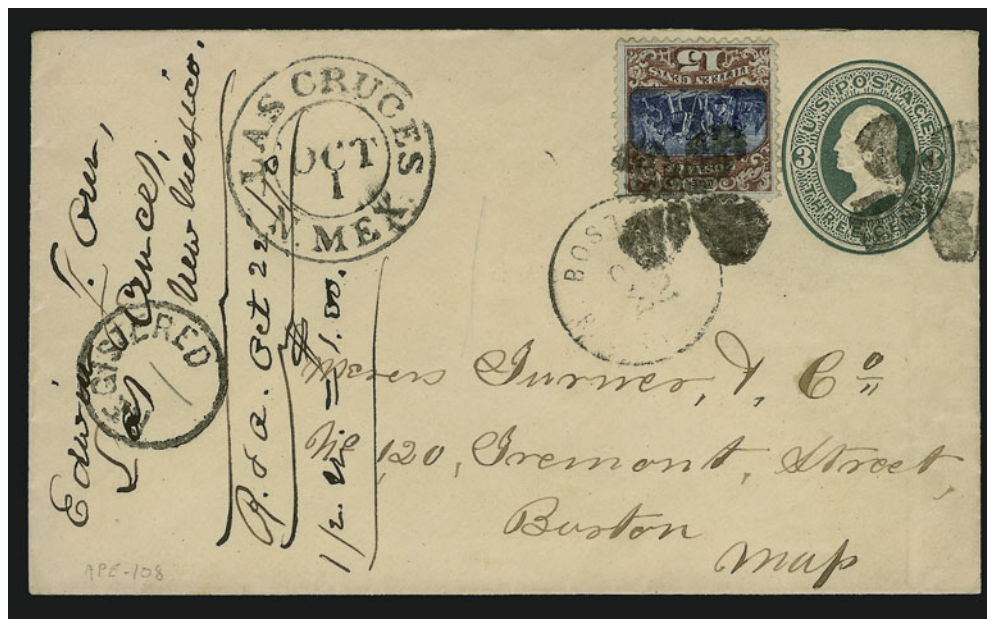 Edwin T. Orr,
Las Cruces,
New Mexico.
LAS CRUCES
OCT
1
N. MEX.
REGISTERED
1
R. & a. Oct 22/70
$1.00.
15
FIFTEEN CENTS
U.S. POSTAGE
3
THREE CENTS
BOST
Messrs Turner, & Co
No 120, Tremont, Street,
Boston
Mass
APE-108